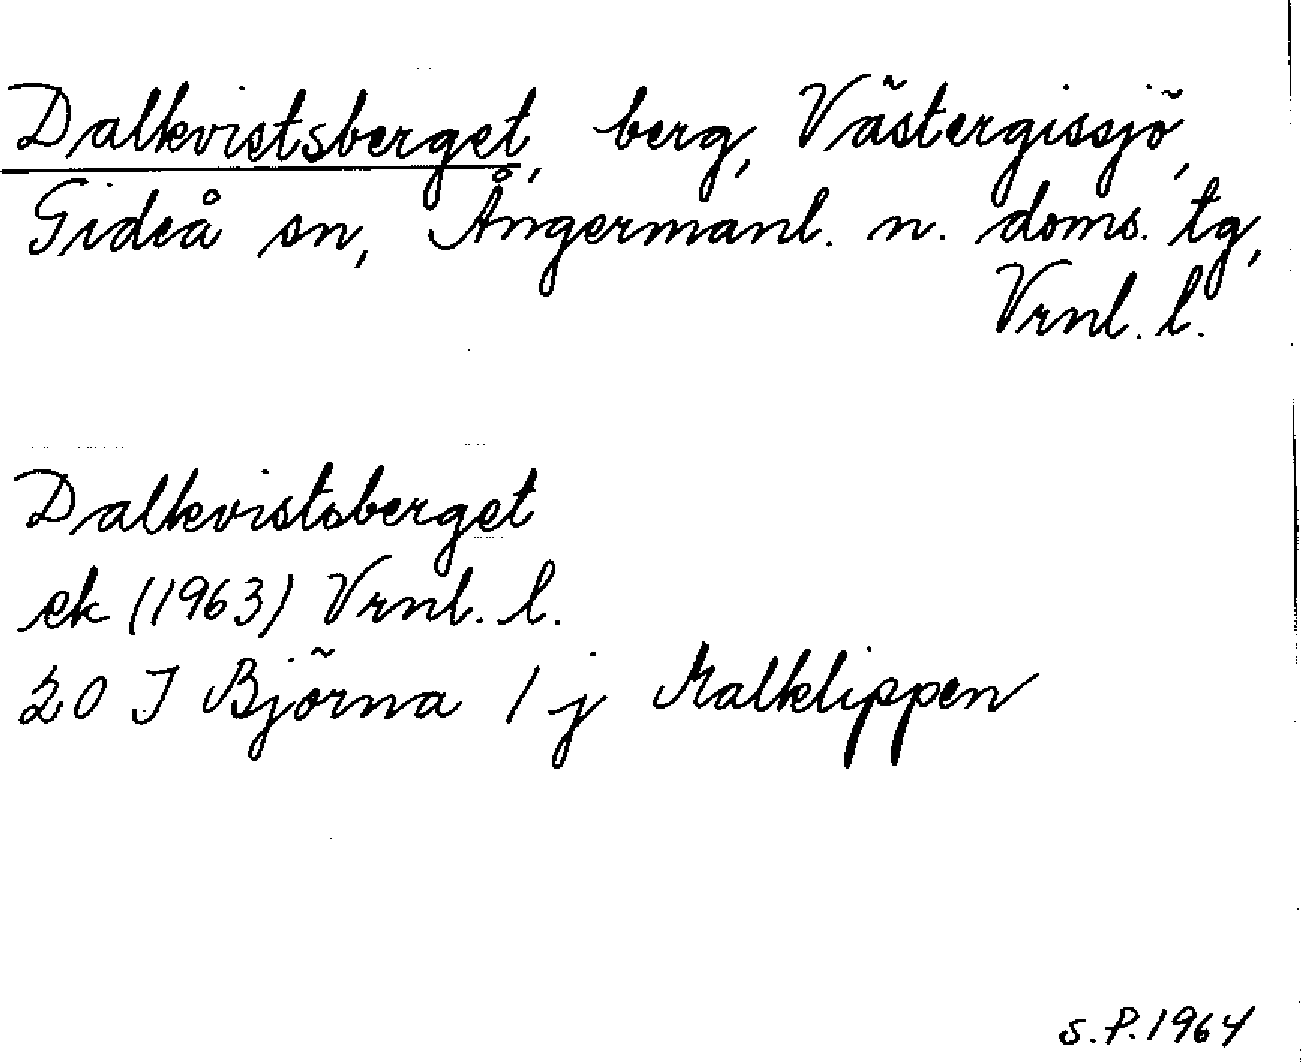 Dalkvistsberget, berg, Västergissjö,
Gideå sn, Ångermanl. n. doms. tg,
Vrnl. l.
Dalkvistsberget
ek (1963) Vrnl. l.
20 J Björna 1 j Malklippen
S.P. 1964